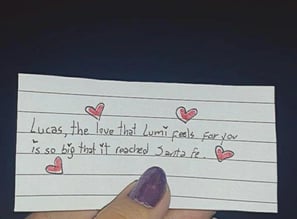 Lucas, the love that Lumi feels for you
is so big that it reached Santa Fe.